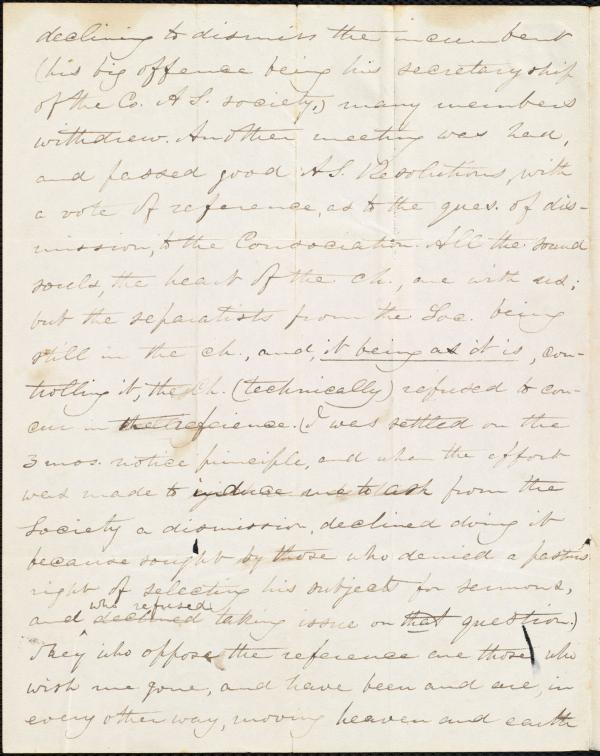 declining to dismiss the incumbent
(his big offence being his secretaryship
of the Co. A S. society,) many members
withdrew. Another meeting was had,
and passed good A S. Resolutions, with
a vote of reference, as to the ques. of dis-
mission, to the Consociation. All the sound
souls, the heart of the ch., are with us;
but the separatists from the Soc. being
still in the ch., and, it being as it is, con-
trolling it, the ch. (technically) refused to con-
cur in the reference. (I was settled on the
3 mos. notice principle, and when the effort
was made to induce me to ask from the
Society a dismission, declined doing it
because sought by those who denied a pastor's
right of selecting his subject for sermons,
who refused
and declined taking issue on that question.)
They who oppose the reference are those who
wish me gone, and have been and are, in
every other way, moving heaven and earth